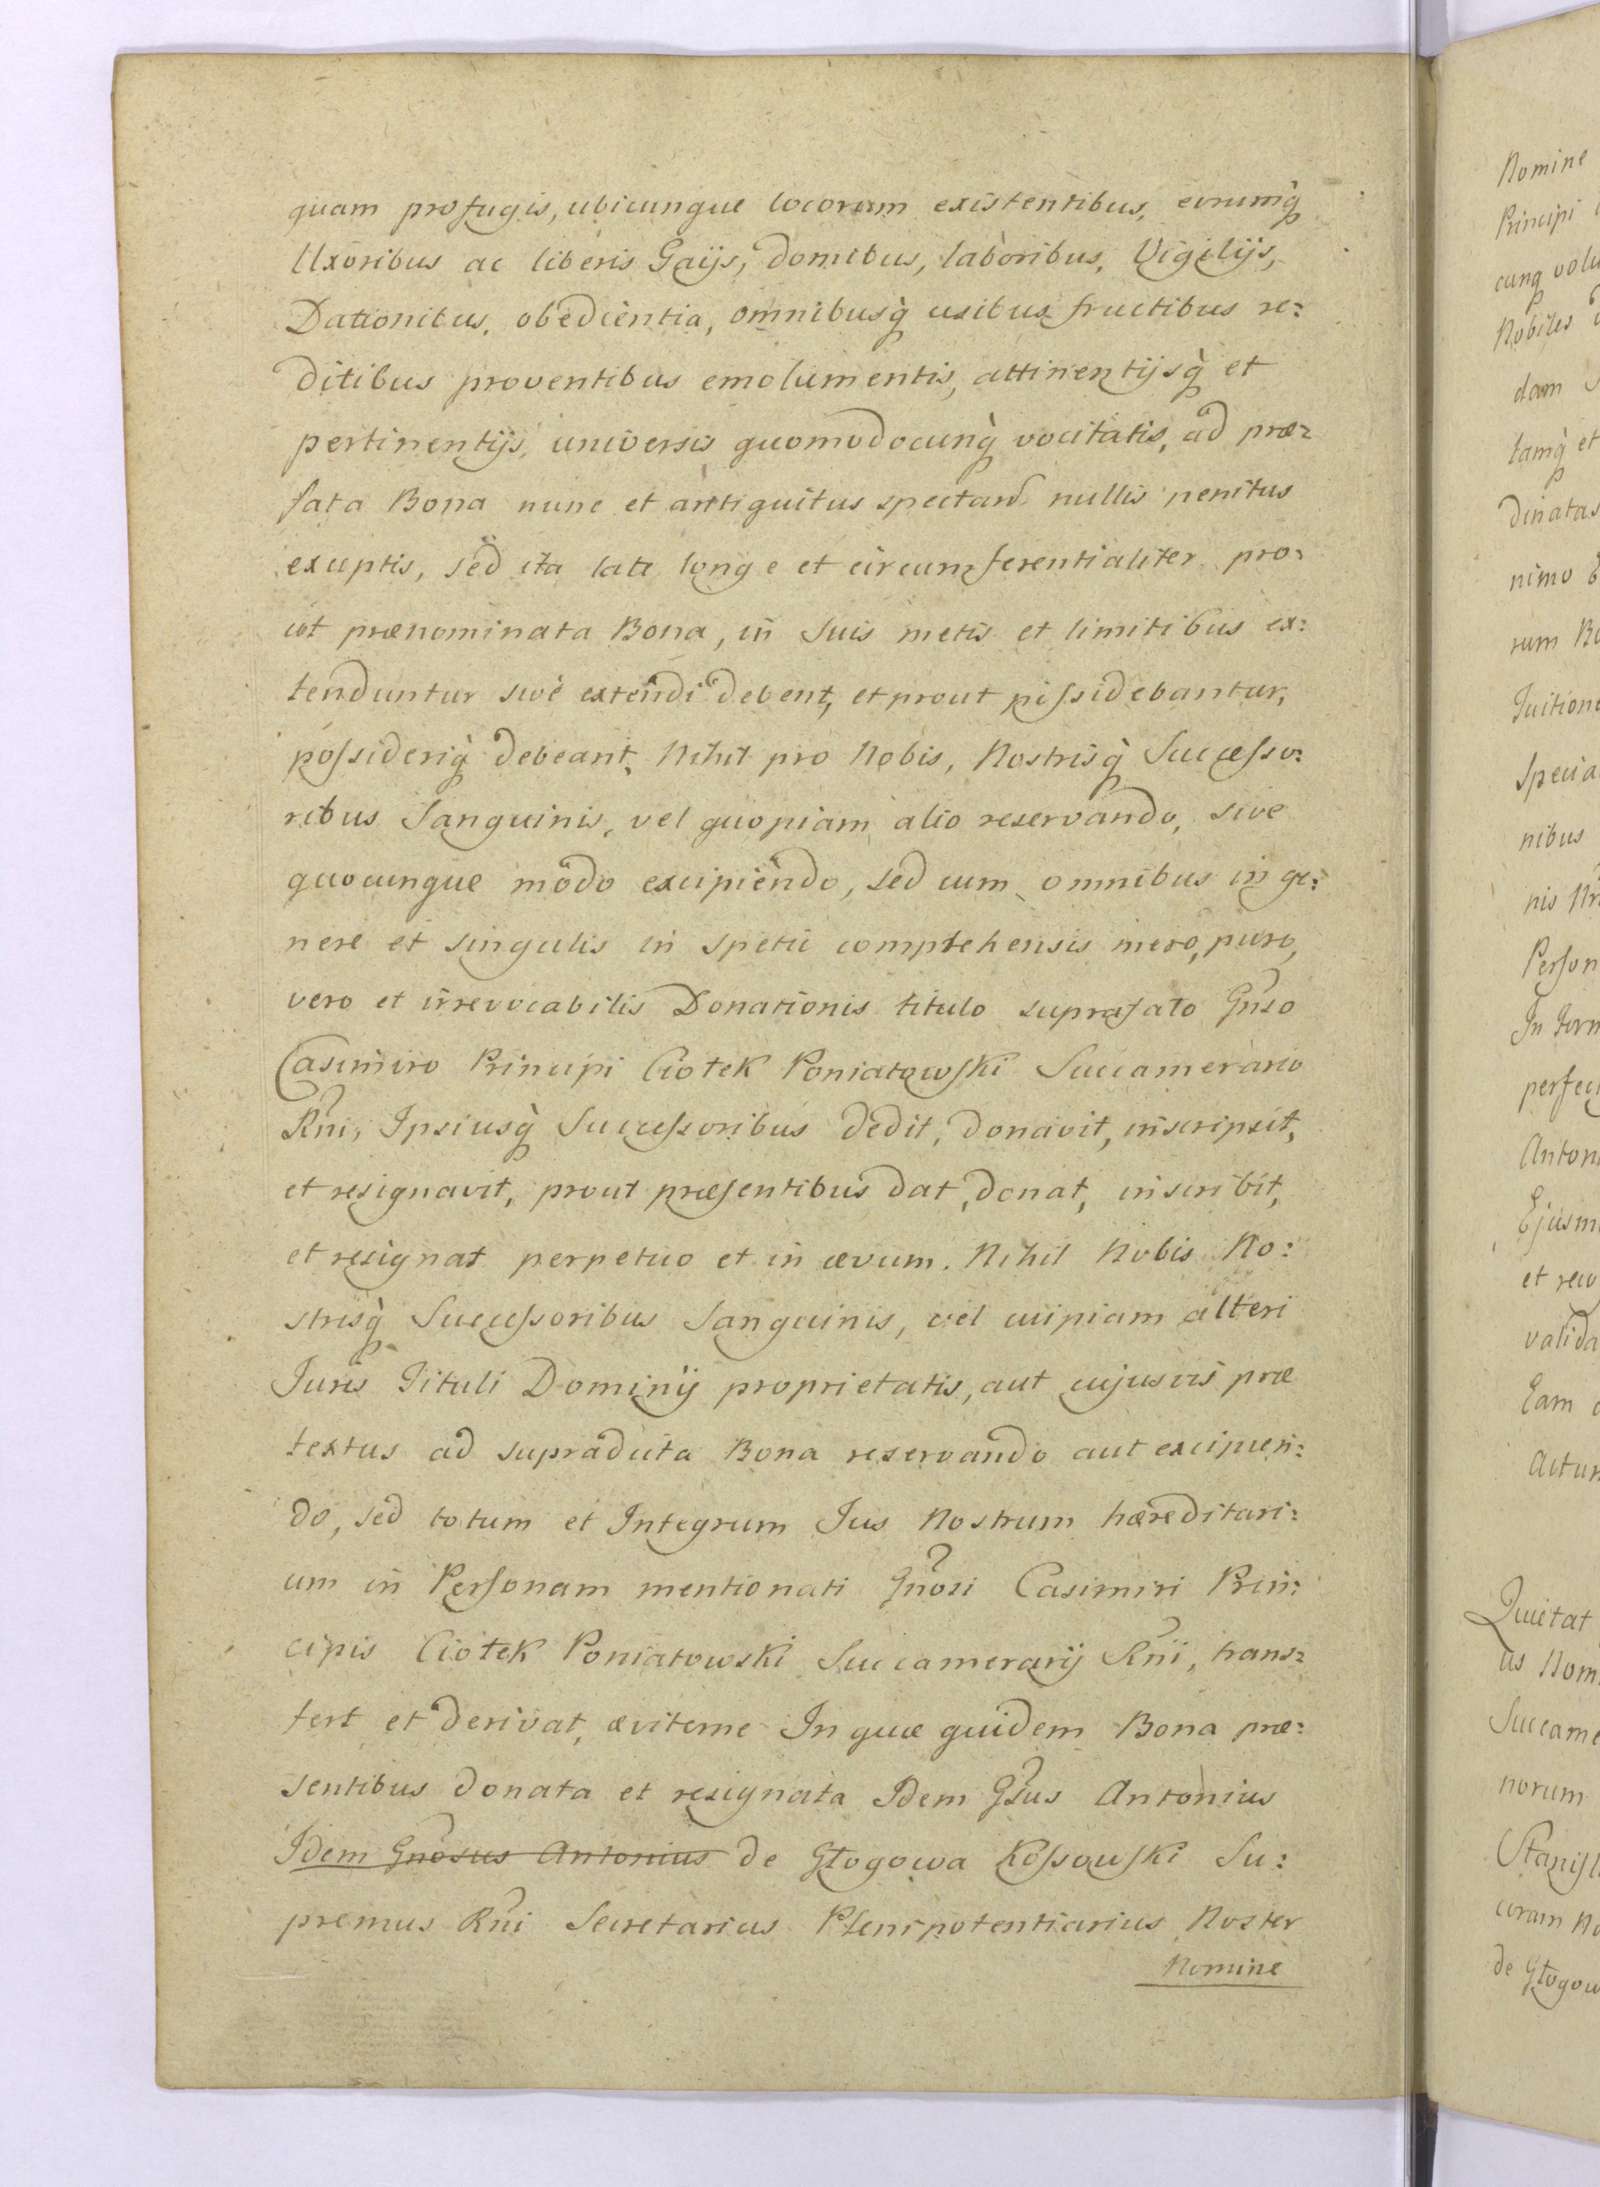 quam profugis, ubicunque locorum existentibus, eorumq̀
Uxoribus ac liberis Gaijs, domibus, laboribus, Vigilijs,
Dationibus, obedientia, omnibusq̀ usibus fructibus re:
ditibus proventibus emolumentis, attinentijsq̀ et
pertinentijs, universis quomodocunq̀ vocitatis, ad præ:
fata Bona nunc et antiquitus spectan̄ nullis penitus
exceptis, sed ita late longe et circumferentialiter pro:
ut prænominata Bona, in suis metis et limitibus ex:
tenduntur sive extendi debent, et prout possidebantur,
possideriq̀ debeant, Nihil pro Nobis, Nostrisq̀ Successo:
ribus Sanguinis, vel quopiam alio reservando, sive
quocunque modo excipiendo, sed cum omnibus in ge:
nere et singulis in specie comprehensis mero, puro,
vero et irrevocabilis Donationis titulo suprafato Gn̄so
Casimiro Principi Ciołek Poniatowski Succamerario
Rn̄i, Ipsiusq̀ Successoribus dedit, donavit, inscripsit,
et resignavit, prout præsentibus dat, donat, inscribit,
et resignat perpetuo et in ævum. Nihil Nobis No:
strisq̀ Successoribus Sanguinis, vel cuipiam alteri
Juris Tituli Dominij proprietatis, aut cujusvis præ
textus ad supradicta Bona reservando aut excipien:
do, sed totum et Integrum Jus Nostrum hæreditari:
um in Personam mentionati Gn̄osi Casimiri Prin:
cipis Ciołek Poniatowski Succamerarij Rn̄i, trans:
fert et derivat, æviterne In quæ quidem Bona præ:
sentibus donata et resignata Idem Gn̄sus Antonius
Idem Gn̄osus Antonius de Głogowa Kossowski Su:
premus Rn̄i Secretarius Plenipotentiarius Noster
Nomine
Nomine
Principi
cunq volu
Nobiles
dam
tamq̀ et
dinatas
nimo
rum Bo
Tuitione
Specia
nibus
nis Nr
Person
In
perfec
Anton
Ejusm
et reco
valida
Eam
Actum
Quietat
us Nom
Succame
norum
Stanisl
coram No
de Głogow